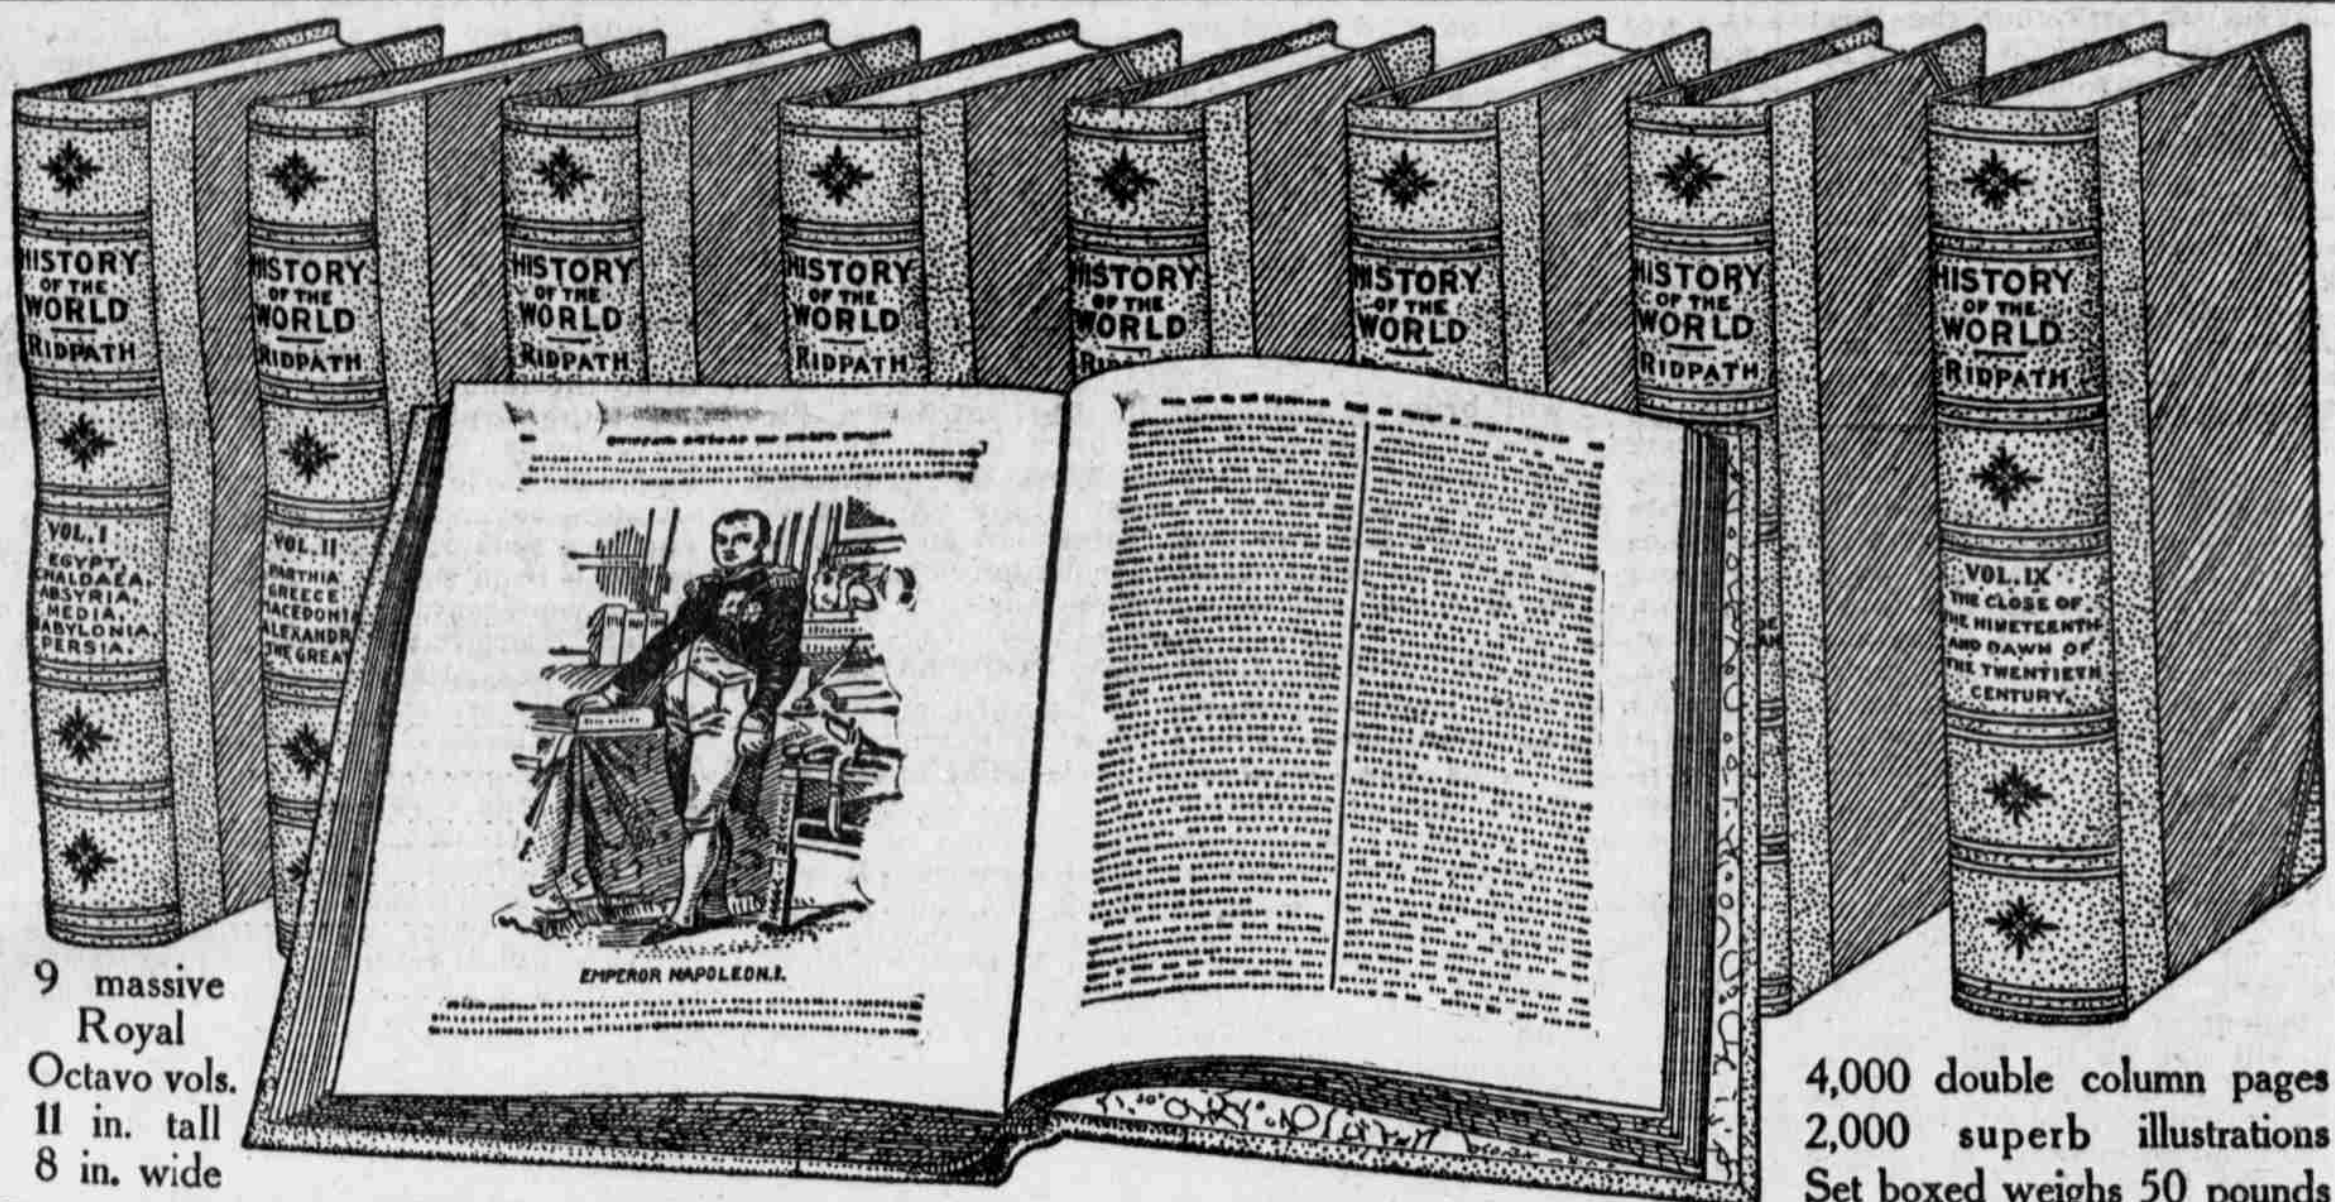 HISTORY
OF THE
WORLD
RIDPATH
VOL. I
EGYPT,
CHALDAEA,
ABSYRIA,
MEDIA,
BABYLONIA,
PERSIA.
HISTORY
OF THE
WORLD
RIDPATH
VOL. II
PARTHIA
GREECE
MACEDONIA
ALEXANDR
THE GREAT
HISTORY
OF THE
WORLD
RIDPATH
HISTORY
OF THE
WORLD
RIDPATH
HISTORY
OF THE
WORLD
RIDPATH
HISTORY
OF THE
WORLD
HISTORY
OF THE
WORLD
RIDPATH
HISTORY
OF THE
WORLD
RIDPATH
VOL. IX
THE CLOSE OF
THE NINETEENTH
AND DAWN OF
THE TWENTIETH
CENTURY.
EMPEROR NAPOLEON.I.
9 massive
Royal
Octavo vols.
11 in. tall
8 in. wide
4,000 double column pages
2,000 superb illustrations
Set boxed weighs 50 pounds